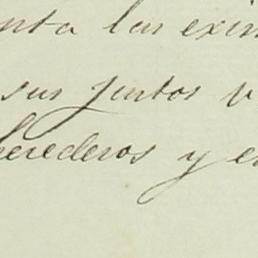 nta las exim
sus justos v
herederos y e